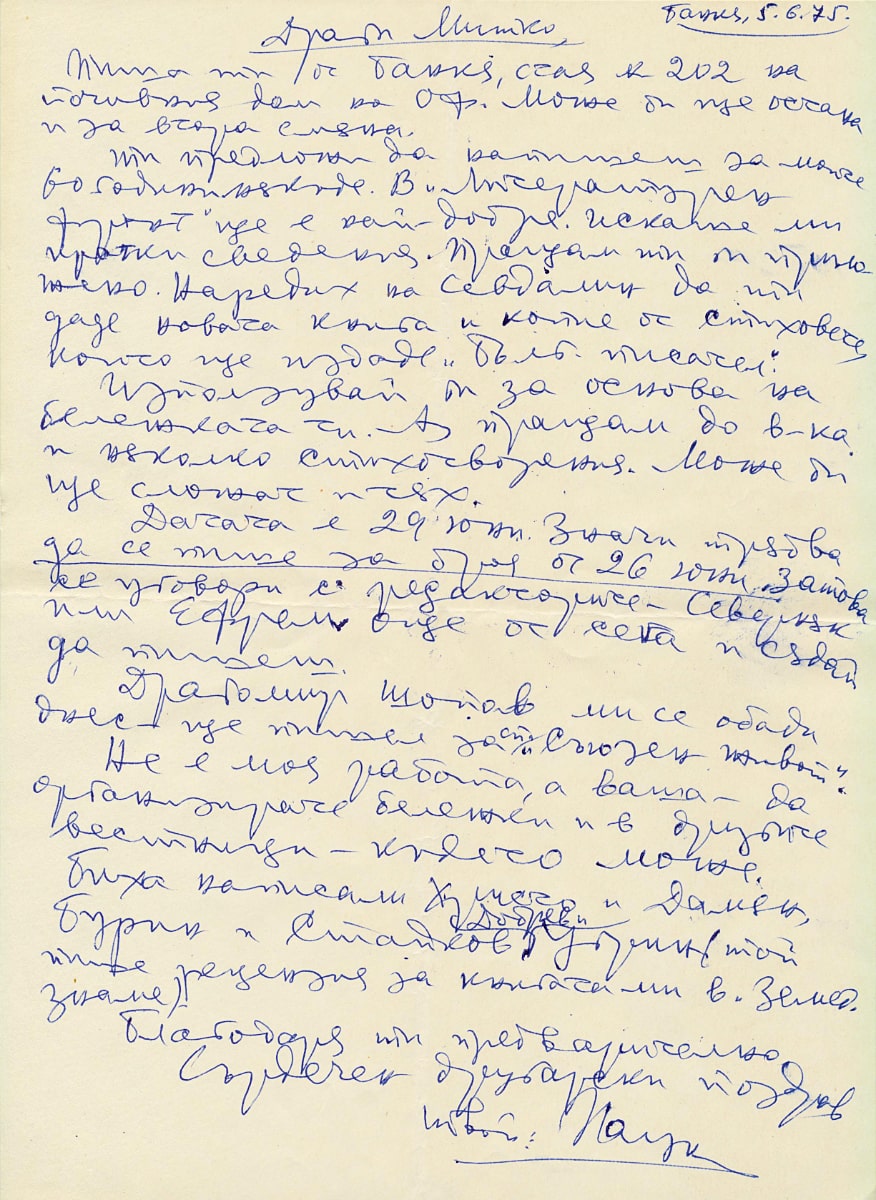 Банкя, 5.6.75.
Драги Митко,
Пиша ти от Банкя, стая № 202 на
почивния дом на ОФ. Може би ще остана
и за втора смяна.
Ти предложи да напишеш за моите
60 години някъде. В „Литературен
фронт" ще е най-добре. Искаше ми
кратки сведения. Пращам ти ги прило-
жено. Наредих на Севдалин да ти
даде новата книга и копие от стиховете,
които ще издаде „Бълг. писател".
Използувай ги за основа на
бележката си. Аз пращам до в-ка
и няколко стихотворения. Може би
ще сложат и тях.
Датата е 29 юни. Значи трябва
да се пише за броя от 26 юни. Затова
се уговори с редакторите – Северняк
или Ефрем още от сега и сядай
да пишеш.
Драгомир Шопов ми се обади
днес – ще пишел за сп. „Съюзен живот".
Не е моя работа, а ваша – да
организирате бележки и в другите
вестници – където може.
Биха написали и Дамян,
Бурин и Стайков, Добрев и (той
пише рецензия за книгата ми в. Земед.
Знаме)
Благодаря ти предварително.
Сърдечен другарски поздрав
Твой: